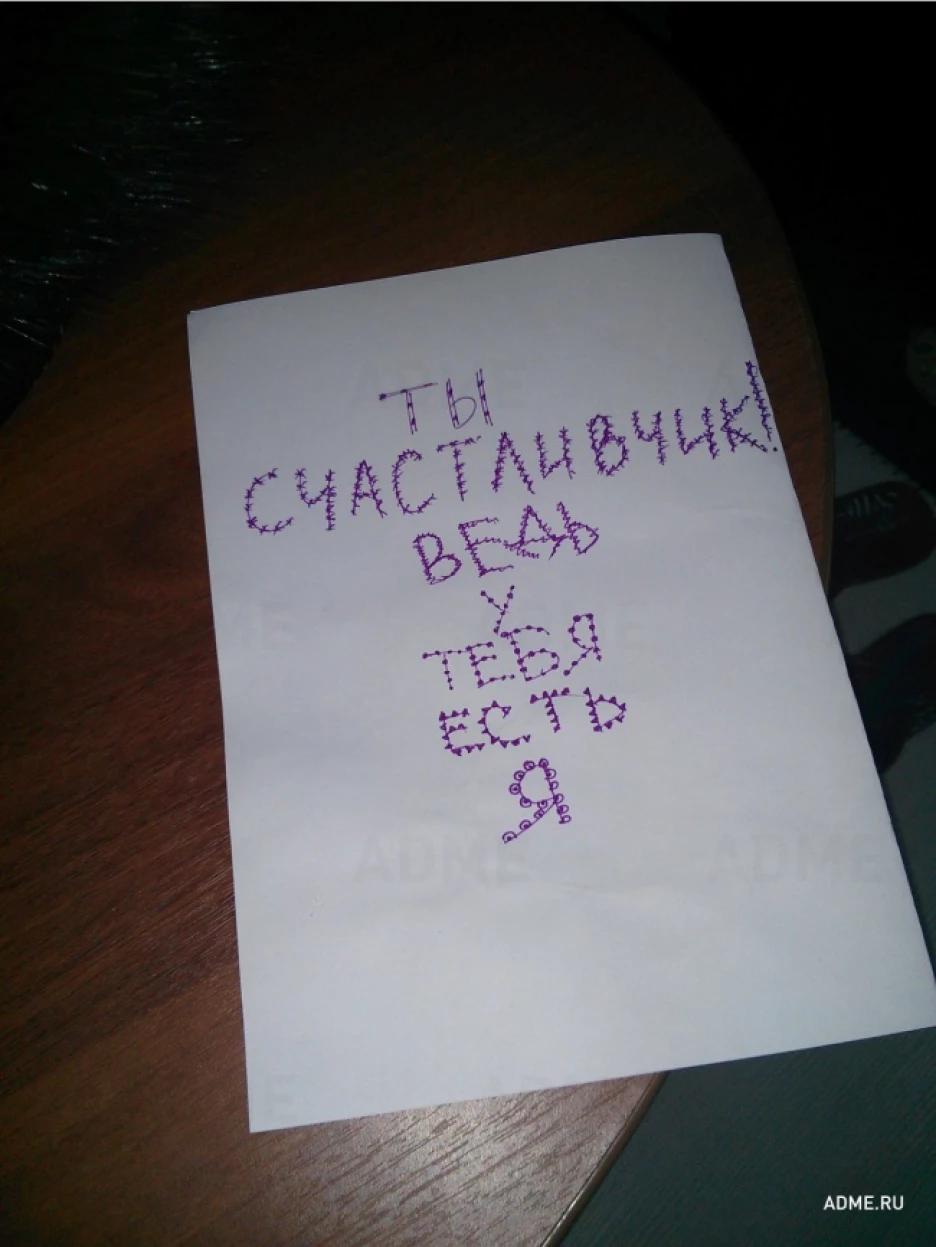 ТЫ
СЧАСТЛИВЧИК!
ВЕДЬ
У
ТЕБЯ
ЕСТЬ
Я
ADME
ADME
ADME.RU